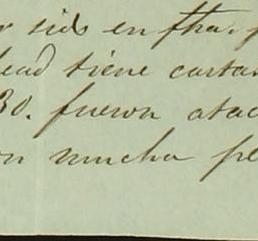 sido en tha.
dad tiene cartas
30. fueron atac
on mucha pe